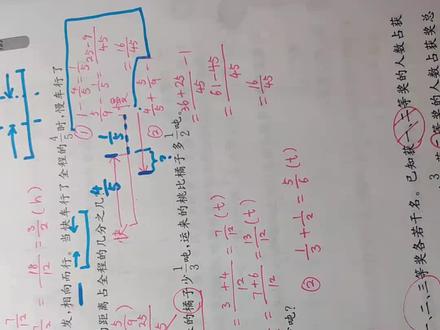 7/12
= 18/12 = 3/2 (h)
发，相向而行。当快车行了全程的4/5时，慢车行了
距离占全程的几分之几
① 1 - 4/5 = 1/5
5/9 - 1/5 = 25-9/45
= 16/45
快 4/5 1/5 慢
② 4/5 + 5/9 - 1
= 36+25/45 - 1
= 61-45/45
= 16/45
的橘子少1/3吨，运来的桃比橘子多1/2吨。
= 3+4/12 = 7/12 (t)
= 7+6/12 = 13/12 (t)
吨？
② 1/3 + 1/2 = 5/6 (t)
二、三等奖各若干名。已知获一、二等奖的人数占获
等奖的人数占获奖总